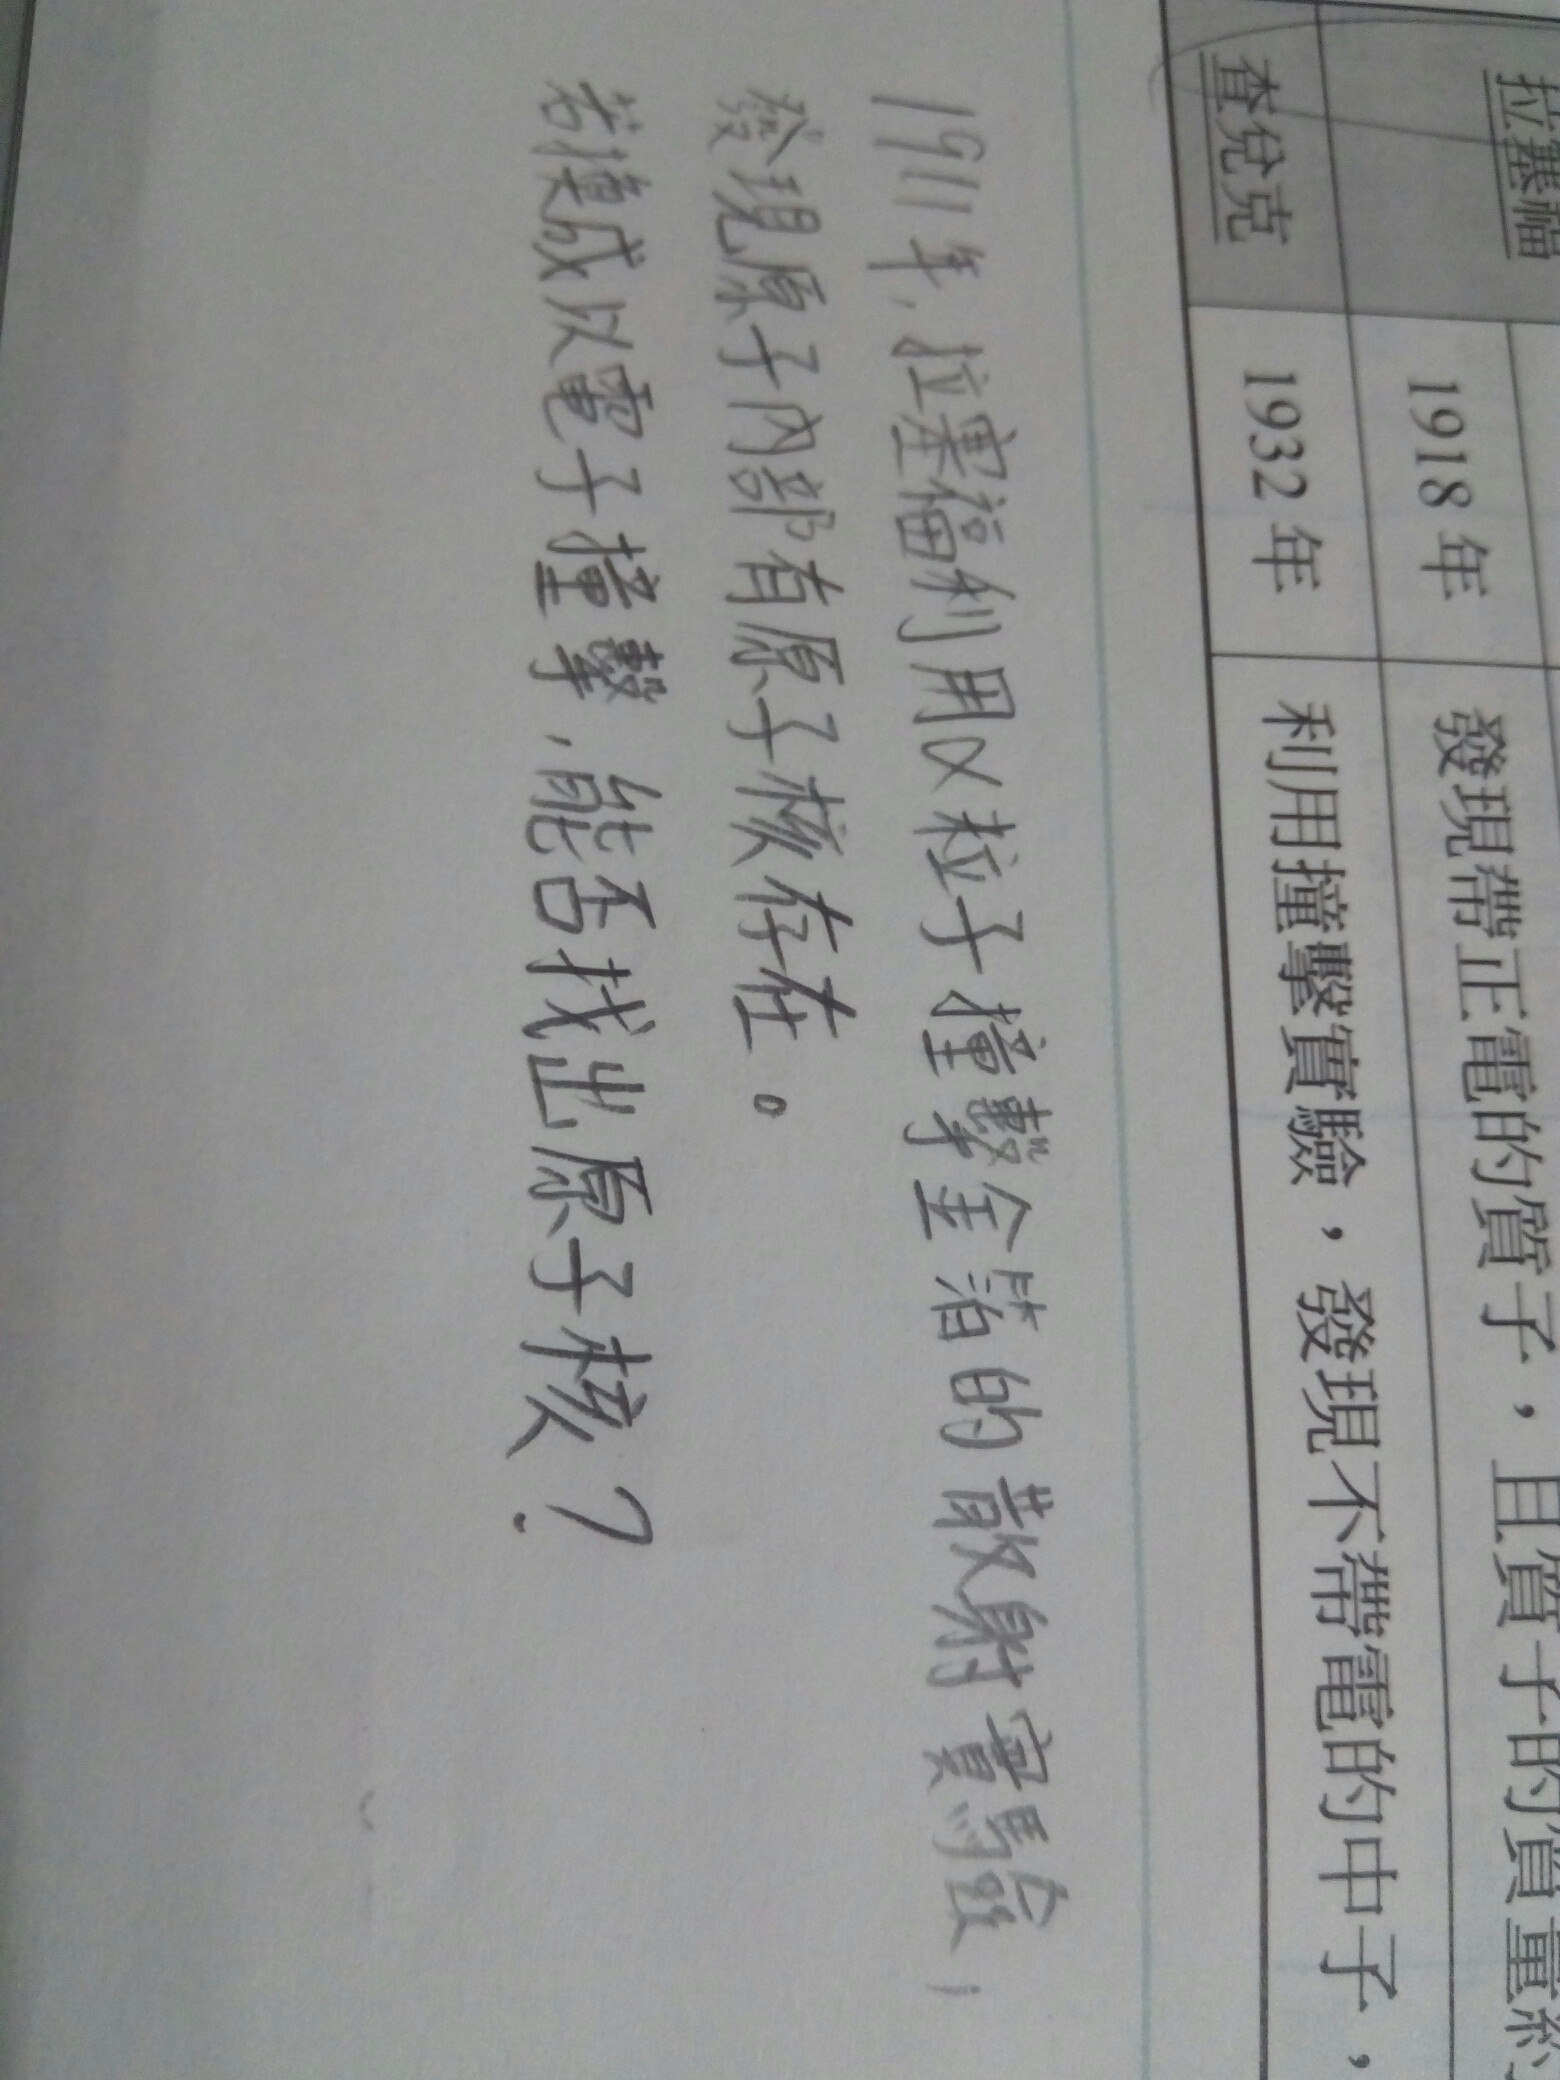 拉塞福
1918 年
發現帶正電的質子,且質子的質量約
查兌克
1932 年
利用撞擊實驗,發現不帶電的中子,
1911年,拉塞福利用α粒子撞擊金箔的散射實驗,
發現原子內部有原子核存在。
若換成以電子撞擊,能否找出原子核?